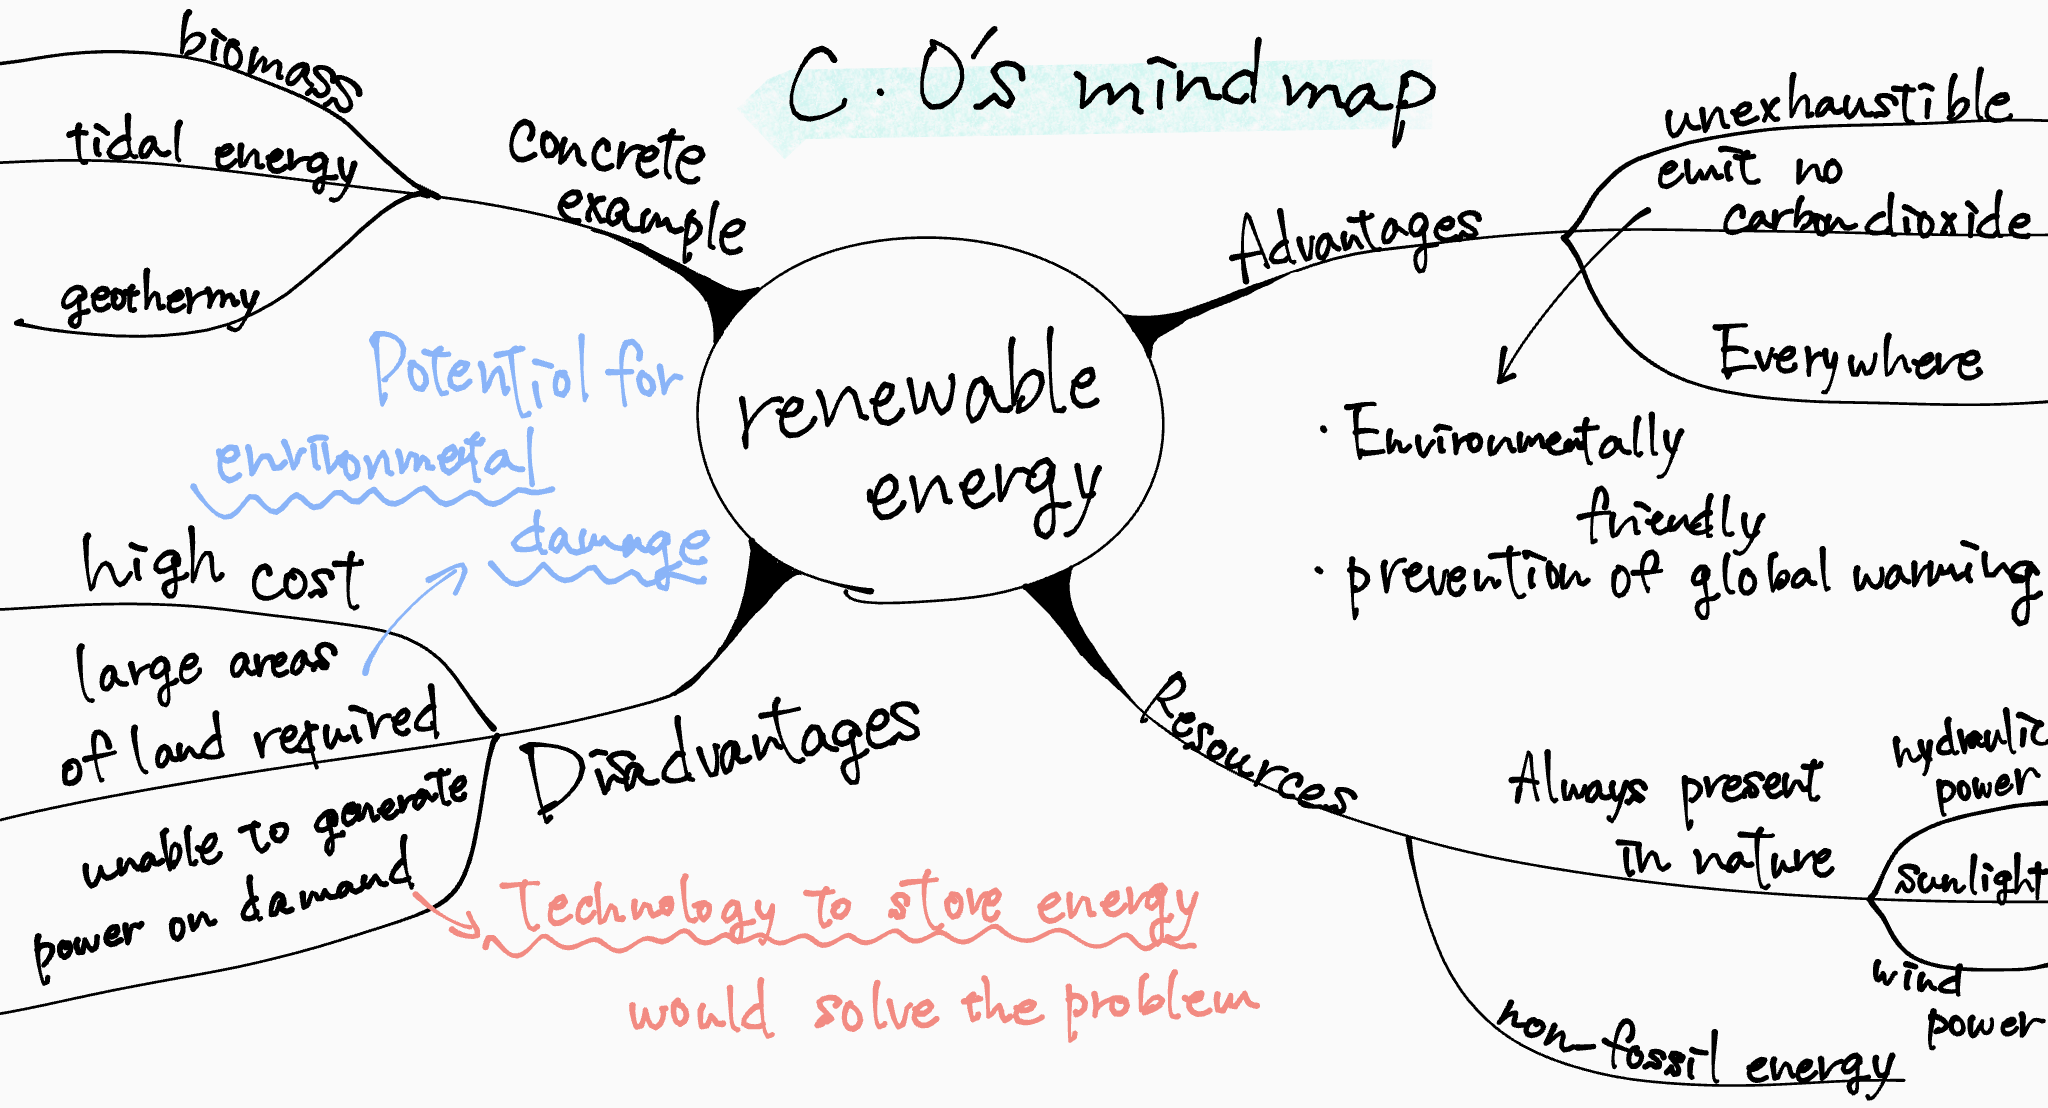 C.O's mindmap
biomass
tidal energy
geothermy
concrete
example
renewable
energy
Advantages
unexhaustible
emit no
carbondioxide
Everywhere
・Environmentally
friendly
・prevention of global warming
Potential for
environmetal
damage
high cost
large areas
of land required
unable to generate
power on damand
Disadvantages
Technology to store energy
would solve the problem
Resources
Always present
in nature
hydraulic
power
sunlight
wind
power
non-fossil energy